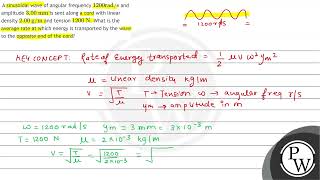 A sinusoidal wave of angular frequency 1200rad/s and
amplitude 3.00 mm is sent along a cord with linear
density 2.00 g/m and tension 1200 N. What is the
average rate at which energy is transported by the wave
to the opposite end of the cord?
= 1200 r/s =
KEY CONCEPT: Rate of Energy transported = 1/2 μ v ω² ym²
μ = linear density kg/m
v = √T/μ T → Tension ω → angular freq r/s
ym → amplitude in m
ω = 1200 rad/s ym = 3 mm = 3×10⁻³ m
T = 1200 N μ = 2×10⁻³ kg/m
v = √T/μ = √1200/2×10⁻³ = √
PW